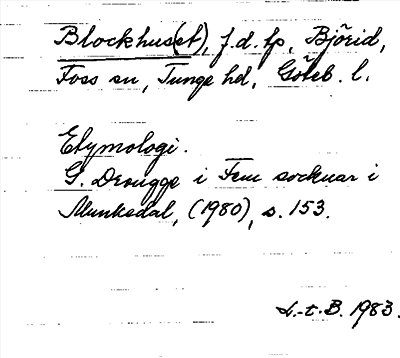 Blockhus(et), f.d. lp, Björid,
Foss sn, Tunge hd, Göteb. l.
Etymologi.
G. Drougge i Fem socknar i
Munkedal, (1980), s. 153.
L.-t. B. 1983.